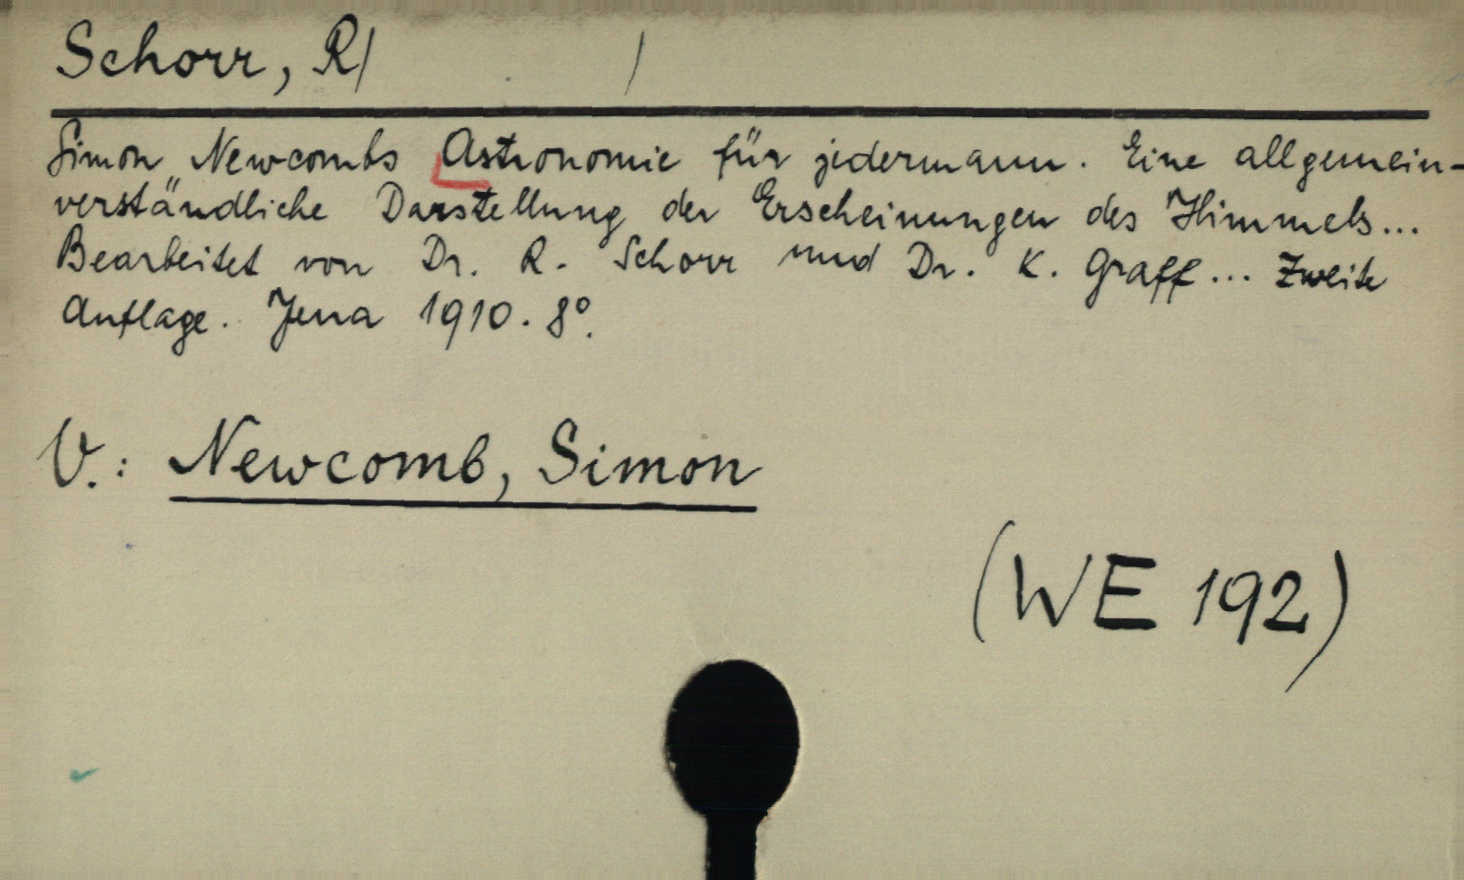 Schorr, R/ /
Simon Newcombs Astronomie für jedermann. Eine allgemein-
verständliche Darstellung der Erscheinungen des Himmels...
Bearbeitet von Dr. R. Schorr und Dr. K. Graff... Zweite
Auflage. Jena 1910. 8°.
V.: Newcomb, Simon
(WE 192)